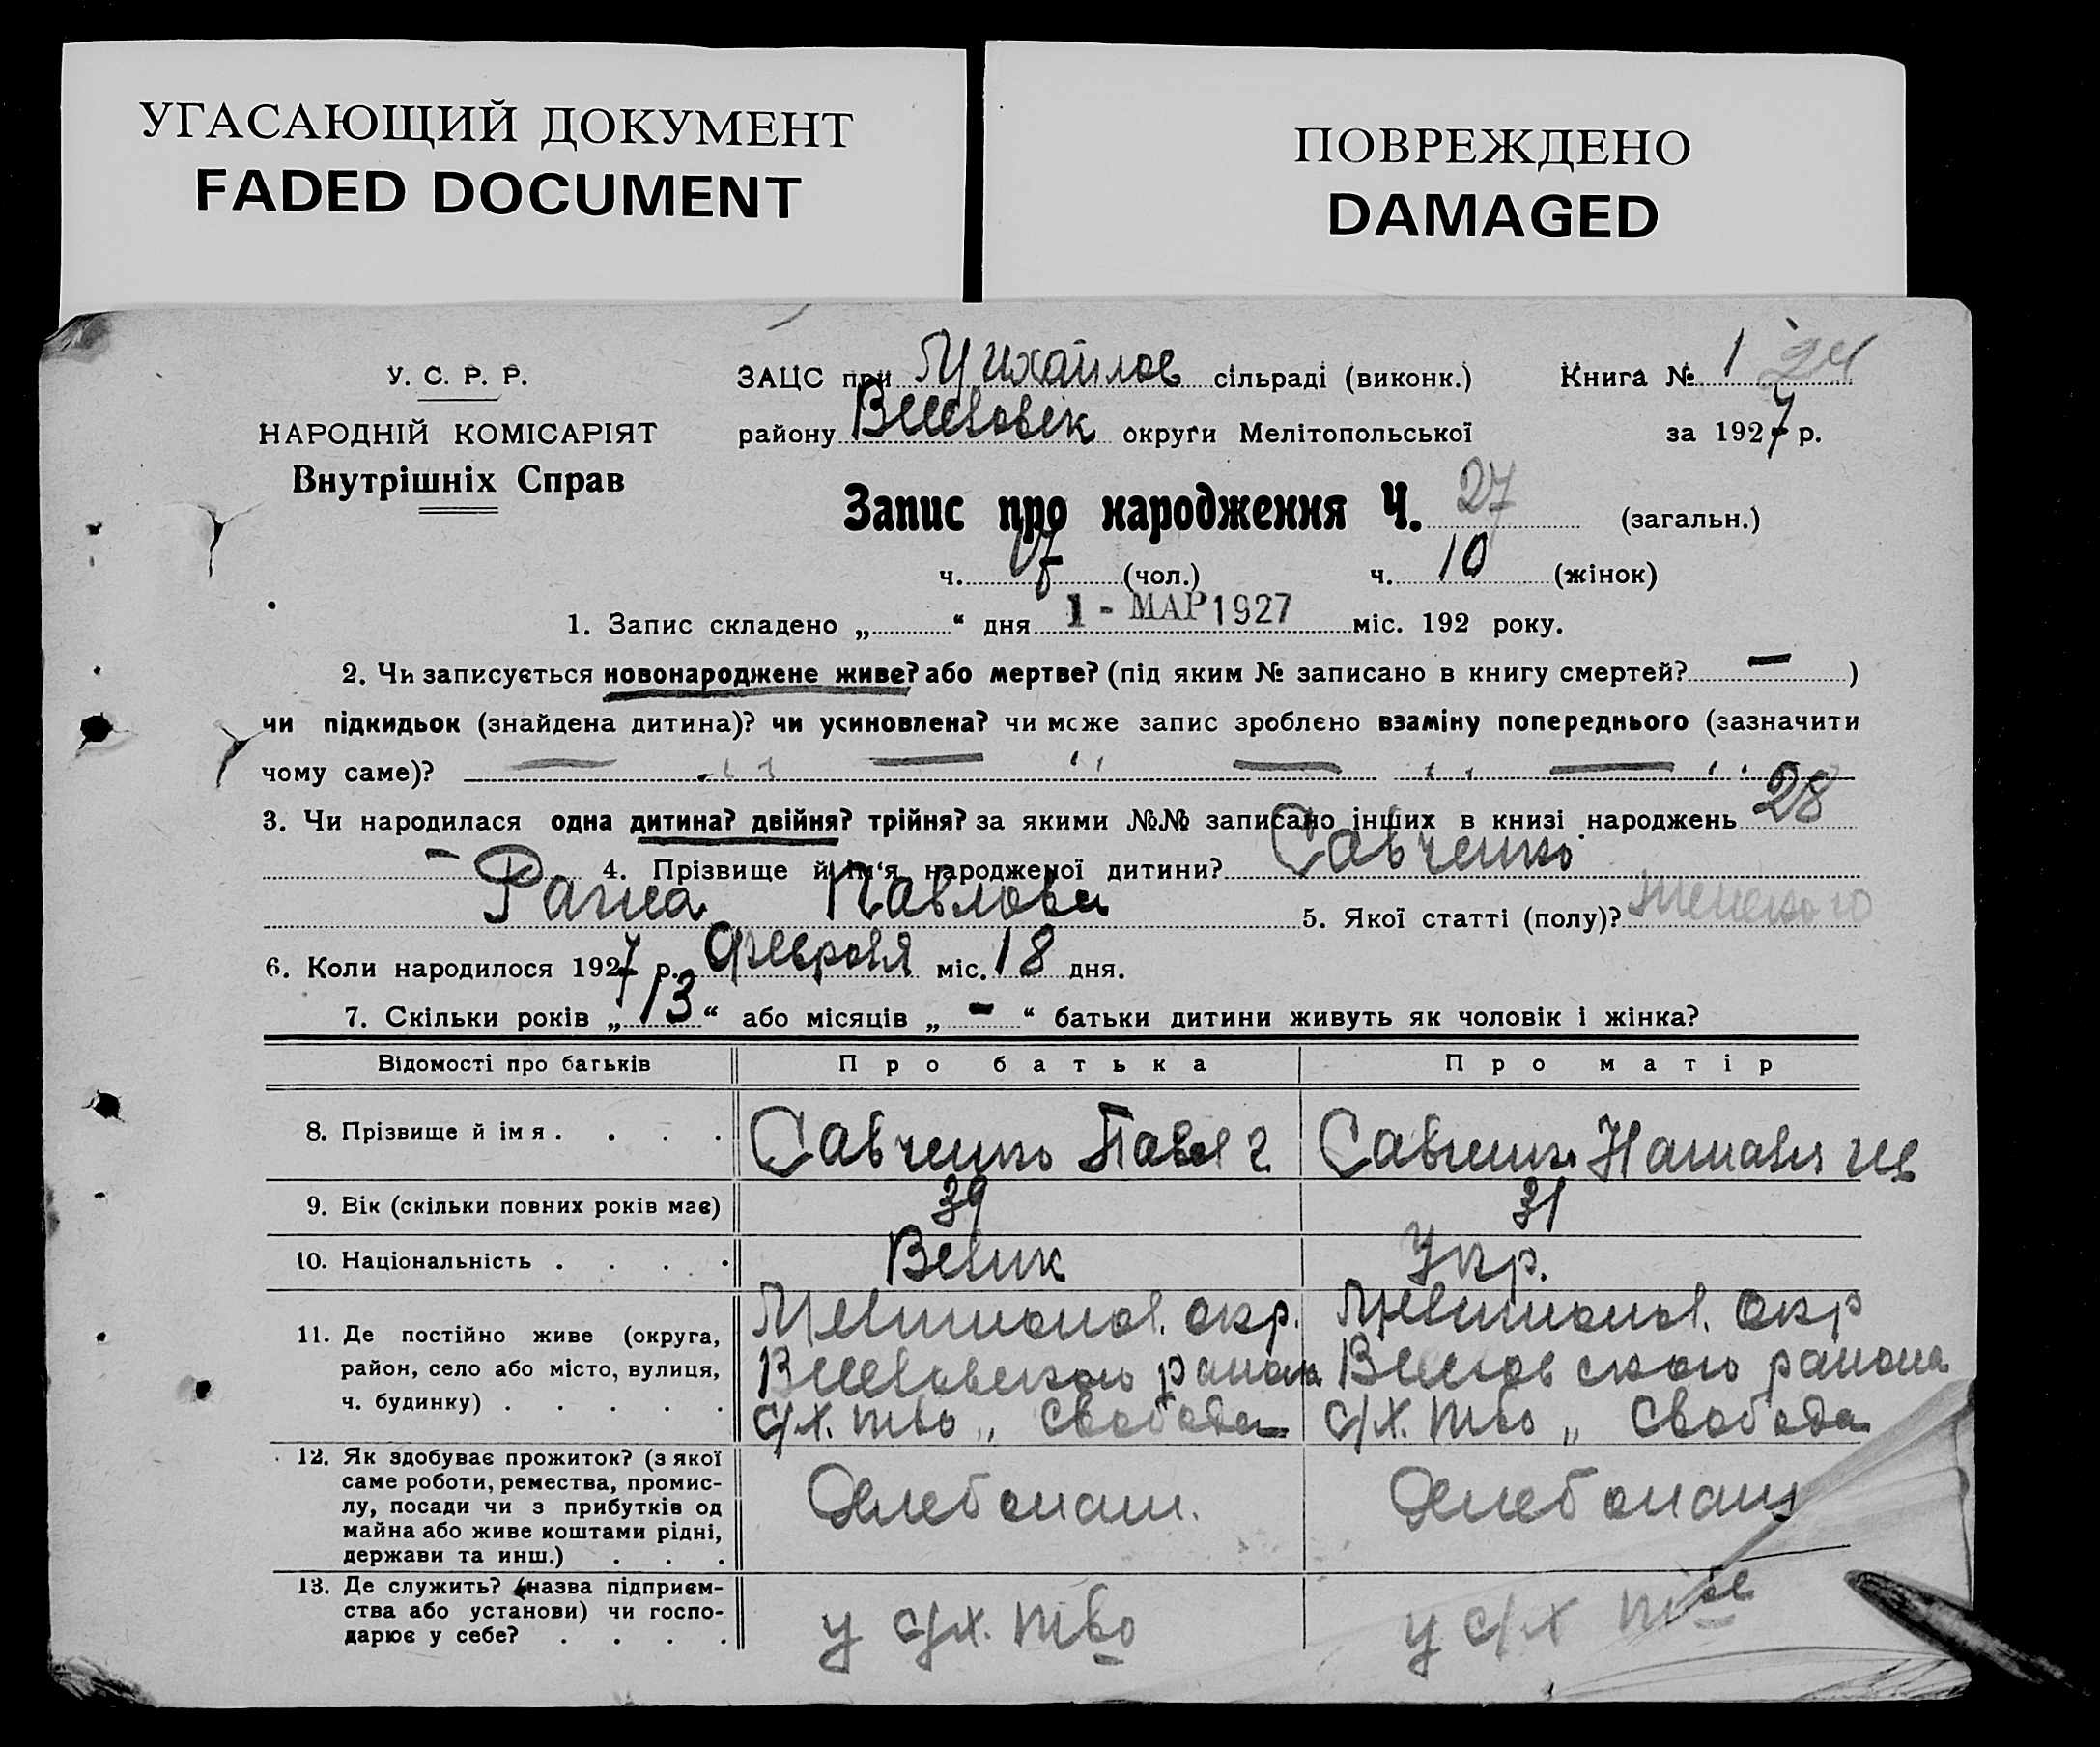 УГАСАЮЩИЙ ДОКУМЕНТ
FADED DOCUMENT
ПОВРЕЖДЕНО
DAMAGED
У. С. Р. Р.
НАРОДНІЙ КОМІСАРІЯТ
Внутрішніх Справ
ЗАЦС при Михайлов сільраді (виконк.)
Книга № 1 24
району Веселовск округи Мелітопольської
за 1927 р.
Запис про народження Ч. 27 (загальн.)
ч. 17 (чол.) ч. 10 (жінок)
1. Запис складено „ “ дня 1 - МАР 1927 міс. 192 року.
2. Чи записується новонароджене живе? або мертве? (під яким № записано в книгу смертей? — )
чи підкидьок (знайдена дитина)? чи усиновлена? чи може запис зроблено взаміну попереднього (зазначити
чому саме)? — „ — „ — „ — „
3. Чи народилася одна дитина? двійня? трійня? за якими №№ записано інших в книзі народжень 28
— 4. Прізвище й ім‘я народженої дитини? Савченко
Раиса Павлова 5. Якої статті (полу)? женского
6. Коли народилося 1927 р. февраля міс. 18 дня.
7. Скільки років „ 13 “ або місяців „ - “ батьки дитини живуть як чоловік і жінка?
Відомості про батьків Про батька Про матір
8. Прізвище й імя . . . .
Савченко Павел Г.
Савченко Наталя
9. Вік (скільки повних років має) 39 31
10. Національність . . . . Велик Укр.
11. Де постійно живе (округа,
район, село або місто, вулиця,
ч. будинку) . . . . .
Мелитопол. окр.
Веселовского района
с/х. тво „ Свобода
Мелитопол. окр
Веселовского района
с/х. тво „ Свобода
12. Як здобуває прожиток? (з якої
саме роботи, ремества, промис-
лу, посади чи з прибутків од
майна або живе коштами рідні,
держави та инш.) . . .
Хлебопаш.
Хлебопаш
13. Де служить? (назва підприєм-
ства або установи) чи госпо-
дарює у себе? . . . .
у с/х. тво
у с/х тве